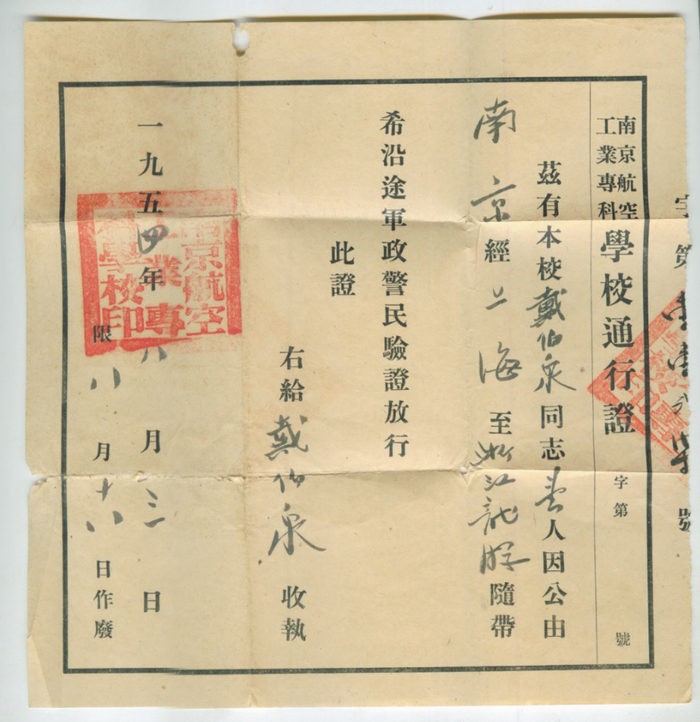 字第
號
南京航空
工業專科
學校通行證
字第 號
茲有本校戴伯泉同志壹人因公由
南京經上海至浙江龍游隨帶
希沿途軍政警民驗證放行
此證
右給戴伯泉收執
一九五四年八月三日
限八月十八日作廢
南京航空
工業專
科學校印